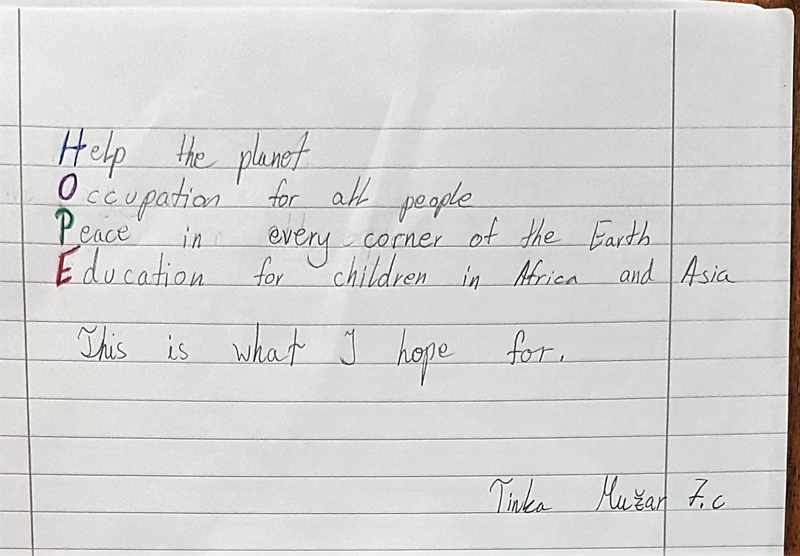 Help the planet
Occupation for all people
Peace in every corner of the Earth
Education for children in Africa and Asia
This is what I hope for.
Tinka Mužar 7.c